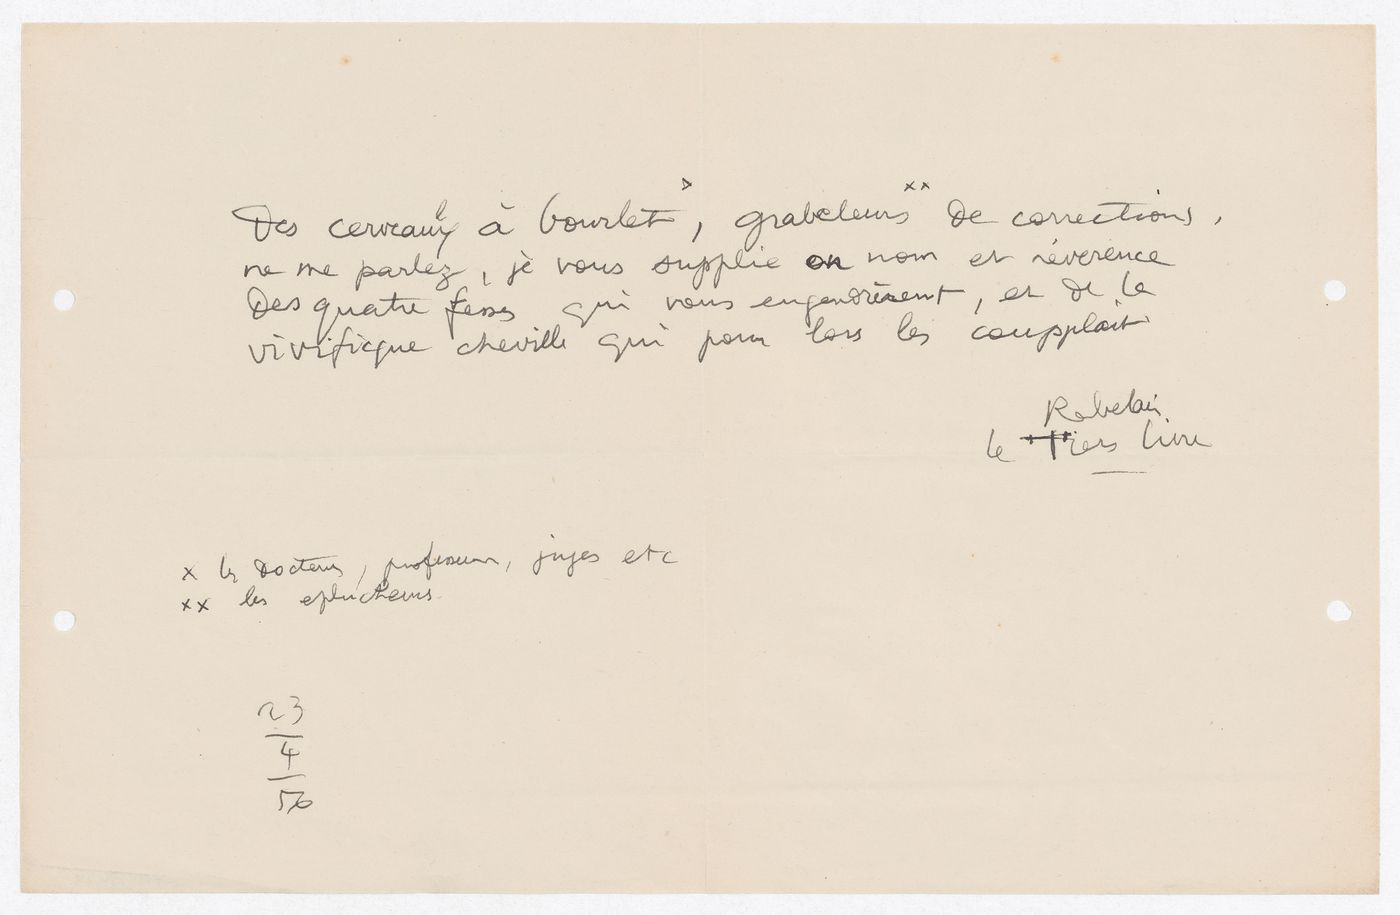 Des cerveaulx à bourlet ˣ, grabeleurs ˣˣ de corrections,
ne me parlez, je vous supplie on nom et révérence
Des quatre fesses qui vous engendrèrent, et de la
vivificque cheville qui pour lors les coupploit
Rabelais
le Tiers livre
x les Docteurs, professeurs, juges etc
xx les éplucheurs.
23
4
50